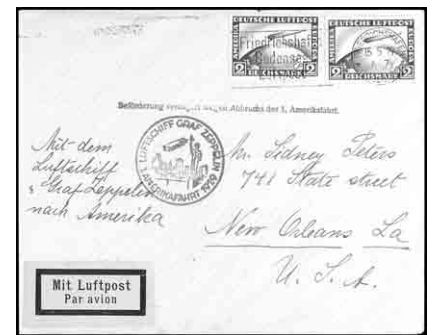 DEUTSCHE LUFTPOST
AMERIKA
2 REICHSMARK 2
DEUTSCHE LUFTPOST
2 REICHSMARK 2
Friedrichshafen
Bodensee
Beförderung verzögert wegen Abbruchs der 1. Amerikafahrt.
LUFTSCHIFF GRAF ZEPPELIN
1. AMERIKAFAHRT 1929
Mit dem
Luftschiff
"Graf Zeppelin
nach Amerika
Mr. Sidney Peters
741 State street
New Orleans La
U. S. A.
Mit Luftpost
Par avion